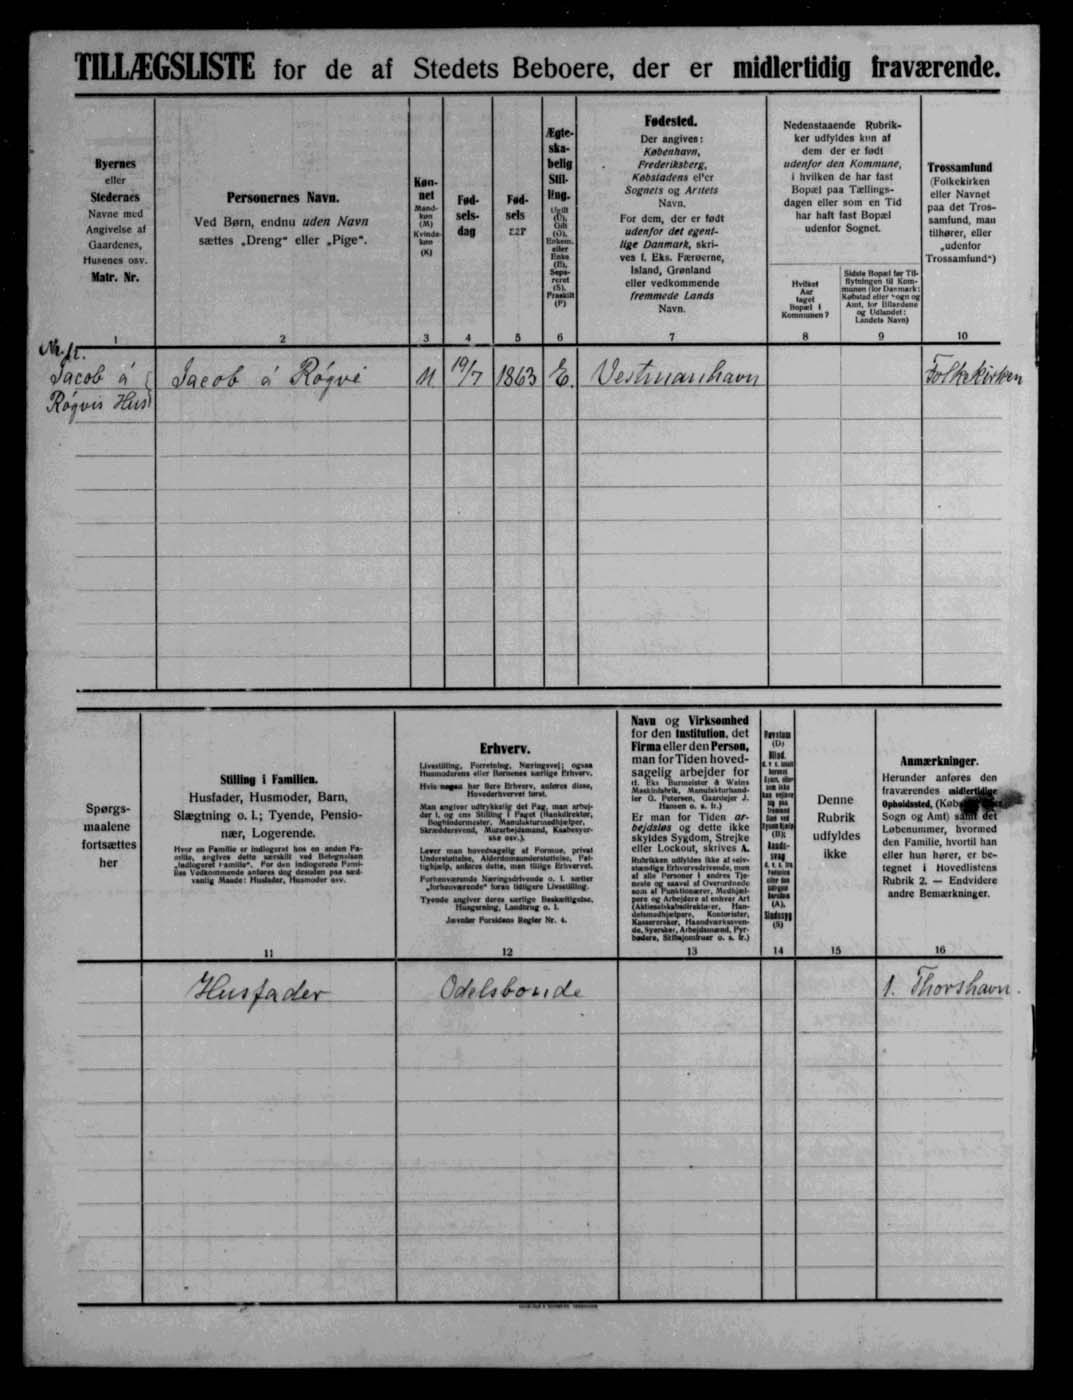 TILLÆGSLISTE for de af Stedets Beboere, der er midlertidig fraværende.
Byernes
eller
Stedernes
Navne med
Angivelse af
Gaardenes,
Husenes osv.
Matr. Nr.
1
Personernes Navn.
Ved Børn, endnu uden Navn
sættes „Dreng“ eller „Pige“.
2
Køn-
net
Mand-
køn
(M)
Kvinde-
køn
(K)
3
Fød-
sels-
dag
4
Fød-
sels
aar
5
Ægte-
ska-
belig
Stil-
ling.
Ugift
(U),
Gift
(G),
Enkem.
eller
Enke
(E),
Sepa-
reret
(S),
Fraskilt
(F)
6
Fødested.
Der angives:
København,
Frederiksberg,
Købstadens eller
Sognets og Amtets
Navn.
For dem, der er født
udenfor det egent-
lige Danmark, skri-
ves f. Eks. Færøerne,
Island, Grønland
eller vedkommende
fremmede Lands
Navn.
7
Nedenstaaende Rubrik-
ker udfyldes kun af
dem der er født
udenfor den Kommune,
i hvilken de har fast
Bopæl paa Tællings-
dagen eller som en Tid
har haft fast Bopæl
udenfor Sognet.
Hvilket
Aar
taget
Bopæl i
Kommunen?
8
Sidste Bopæl før Til-
flytningen til Kom-
munen (for Danmark:
Købstad eller Sogn og
Amt, for Bilandene
og Udlandet:
Landets Navn)
9
Trossamfund
(Folkekirken
eller Navnet
paa det Tros-
samfund, man
tilhører, eller
„udenfor
Trossamfund“)
10
Jacob á Jacob á Røgvi M 19/7 1863 E. Vestmanhavn Folkekirken
Røgvis Hus
Spørgs-
maalene
fortsættes
her
Stilling i Familien.
Husfader, Husmoder, Barn,
Slægtning o. l.; Tyende, Pensio-
nær, Logerende.
Hvor en Familie er indlogeret hos en anden Fa-
milie, angives dette særskilt ved Betegnelsen
„Indlogeret Familie“. For den indlogerede Fami-
lies Vedkommende anføres dog desuden paa sæd-
vanlig Maade: Husfader, Husmoder osv.
11
Erhverv.
Livsstilling, Forretning, Næringsvej; ogsaa
Husmoderens eller Børnenes særlige Erhverv.
Hvis nogen har flere Erhverv, anføres disse,
Hovederhvervet først.
Man angiver udtrykkelig det Fag, man arbej-
der i, og ens Stilling i Faget (Bankdirektør,
Bogbindermester, Manufakturmedhjælper,
Skræddersvend, Murarbejdsmand, Kaabesyer-
ske osv.).
Lever man hovedsagelig af Formue, privat
Understøttelse, Alderdomsunderstøttelse, Fat-
tighjælp, anføres dette, man tillige Erhvervet.
Forhenværende Næringsdrivende o. l. sætter
„forhenværende“ foran tidligere Livsstilling.
Tyende angiver deres særlige Beskæftigelse,
Husgerning, Landbrug o. l.
Jævnfør Forsidens Regler Nr. 4.
12
Navn og Virksomhed
for den Institution, det
Firma eller den Person,
man for Tiden hoved-
sagelig arbejder for
(f. Eks Burmeister & Wains
Maskinfabrik, Manufakturhand-
ler G. Petersen, Gaardejer J.
Hansen o. s. fr.)
Er man for Tiden ar-
bejdsløs og dette ikke
skyldes Sygdom, Strejke
eller Lockout, skrives A.
Rubrikken udfyldes ikke af selv-
stændige Erhvervsdrivende, men
af alle Personer i andres Tje-
neste og saavel af Overordnede
som af Funktionærer, Medhjæl-
pere og Arbejdere af enhver Art
(Aktieselskabsdirektører, Han-
delsmedhjælpere, Kontorister,
Kassererskor, Haandværkssven-
de, Syersker, Arbejdsmænd, Fyr-
bødere, Skibsjomfruer o. s. fr.)
13
14
Denne
Rubrik
udfyldes
ikke
15
Anmærkninger.
Herunder anføres den
fraværendes midlertidige
Opholdssted,
Sogn og Amt) samt det
Løbenummer, hvormed
den Familie, hvortil han
eller hun hører, er be-
tegnet i Hovedlistens
Rubrik 2. — Endvidere
andre Bemærkninger.
16
Husfader Odelsbonde 1. Thorshavn.